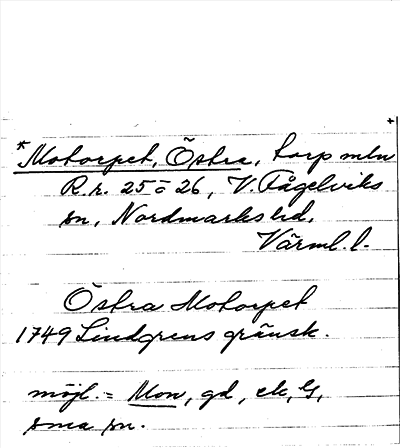 *Motorpet, Östra, torp mln
R.r. 25 o 26, V. Fågelviks
sn, Nordmarks hd.
Värml. l.
Östra Motorpet
1749 Lindgrens gränsk.
möjl. = Mon, gd, ek,
sma sn.